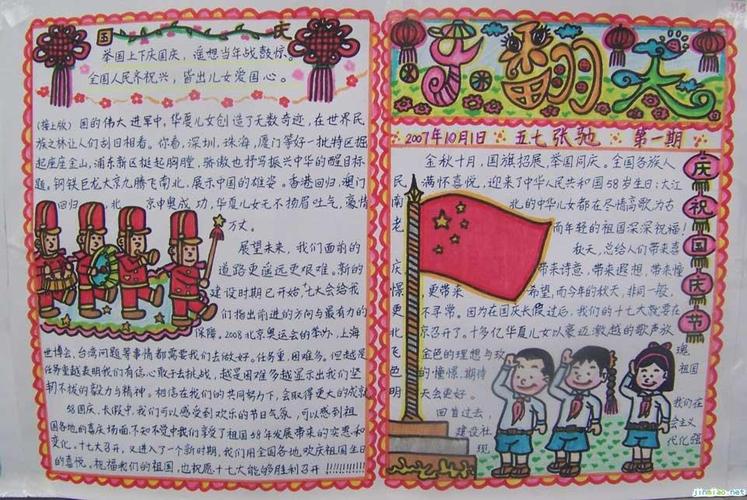 国庆
举国上下庆国庆，遥想当年战鼓惊。
全国人民齐祝兴，皆出儿女爱国心。
(接上版) 国的伟大进军中，华夏儿女创造了无数奇迹，在世界民
族之林让人们刮目相看。你看，深圳，珠海，厦门等好一批特区崛
起座座金山，浦东新区挺起胸膛，骄傲也抒写振兴中华的醒目标
题，钢铁巨龙大京九腾飞南北，展示中国的雄姿。香港回归，澳门
回归，北京申奥成功，华夏儿女无不扬眉吐气，豪情
万丈。
展望未来，我们面前的
道路更遥远更艰难。新的
建设时期已开始，十七大会给我
们指出前进的方向与最有力的
保障。2008北京奥运会的举办，上海
世博会，台湾问题等事情都需要我们去做好。任务重，困难多。但越是
任务重越表明我们有信心敢于去挑战，越是困难多越显示出我们坚
韧不拔的毅力与精神。相信在我们的共同努力下，会取得更大的成就
结国庆，长假中，我们可以感受到欢乐的节日气氛，可以感到祖
国各地的喜庆场面，不知不觉中我们享受了祖国58年发展带来的实惠和
变化。十七大召开，又进入了一个新时期，我们用全国各地欢庆祖国生日
的喜悦，祝福我们的祖国，也祝愿十七大能够胜利召开!!!!!!!!!!
番羽大
2007年10月1日 五七张驰 第一期
庆祝国庆节
金秋十月，国旗招展，举国同庆。全国各族人
民满怀喜悦，迎来了中华人民共和国58岁生日；大江
南北的中华儿女都在尽情高歌为古
老而年轻的祖国深深祝福！
秋天，总给人们带来喜
庆带来诗意，带来遐想，带来憧
憬，更带来希望，而今年的秋天，非同一般，
更不寻常。因为在国庆长假过后，我们的十七大就要在
北京召开了。十多亿华夏儿女以豪迈，激越的歌声放
飞金色的理想与玫瑰
色的憧憬，期待祖国
明天会更好。我们在
回首过去，会主义
建设社现代化强
jinmiao.net